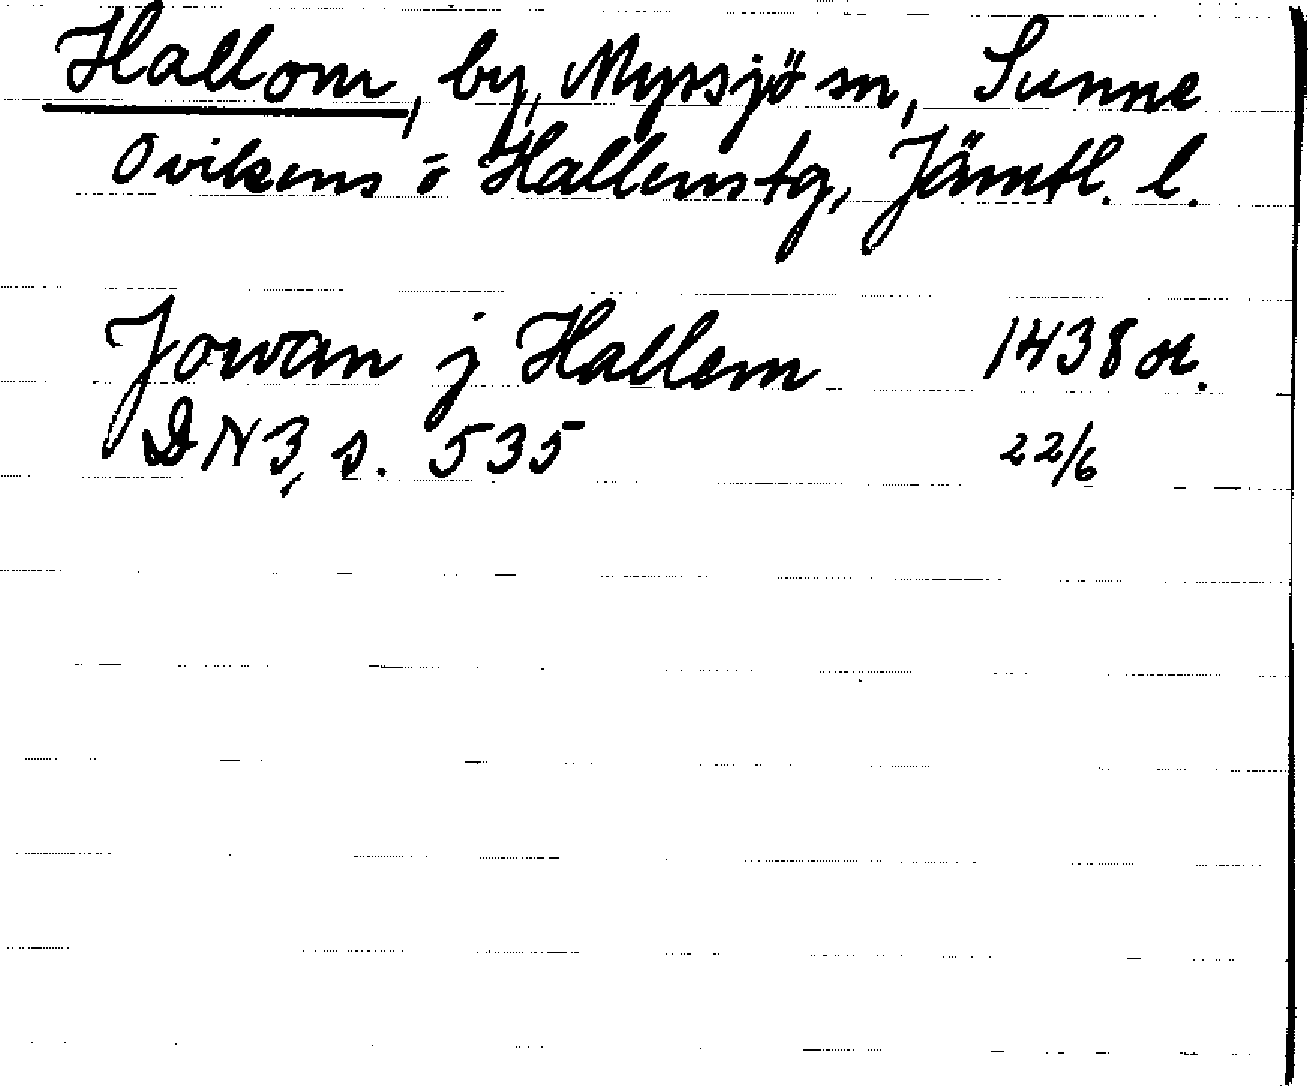 Hallom, by, Myssjö sn, Sunne
Ovikens o Hallens tg, Jämtl. l.
Jowan j Hallem 1438 or.
DN 3, s. 535 22/6